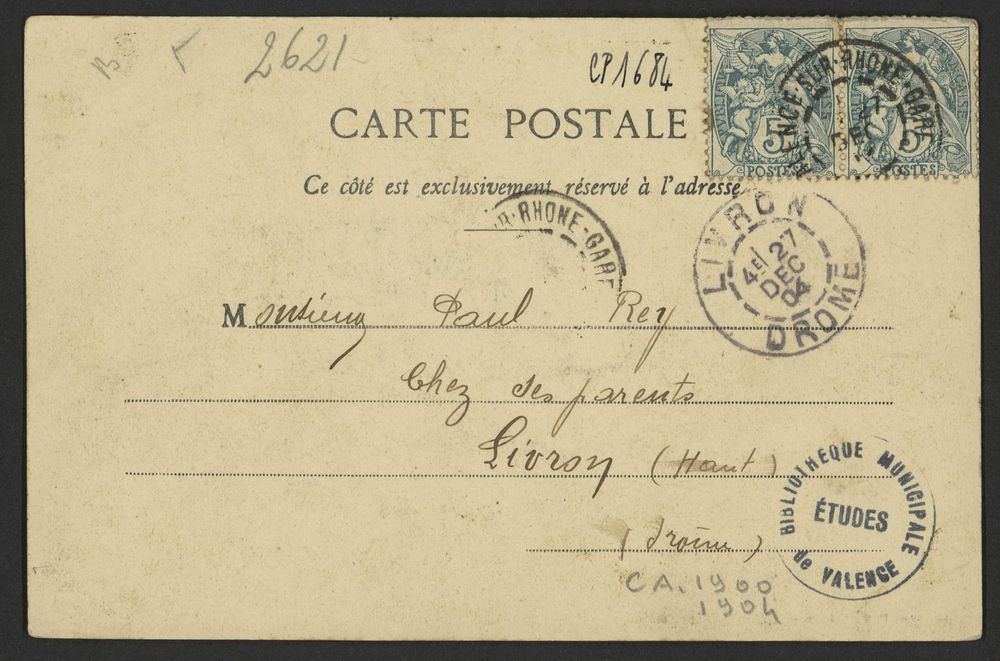 2621-
CP1684
CARTE POSTALE
Ce côté est exclusivement réservé à l'adresse
5 POSTES
5 POSTES
VALENCE-SUR-RHONE-GARE
27
DEC
UR-RHONE-GARE
LIVRON
4E/27
DEC
04
DROME
Monsieur Paul Rey
Chez ses parents
Livron (Haut)
(Drôme)
BIBLIOTHEQUE MUNICIPALE
ÉTUDES
de VALENCE
CA. 1900
1904